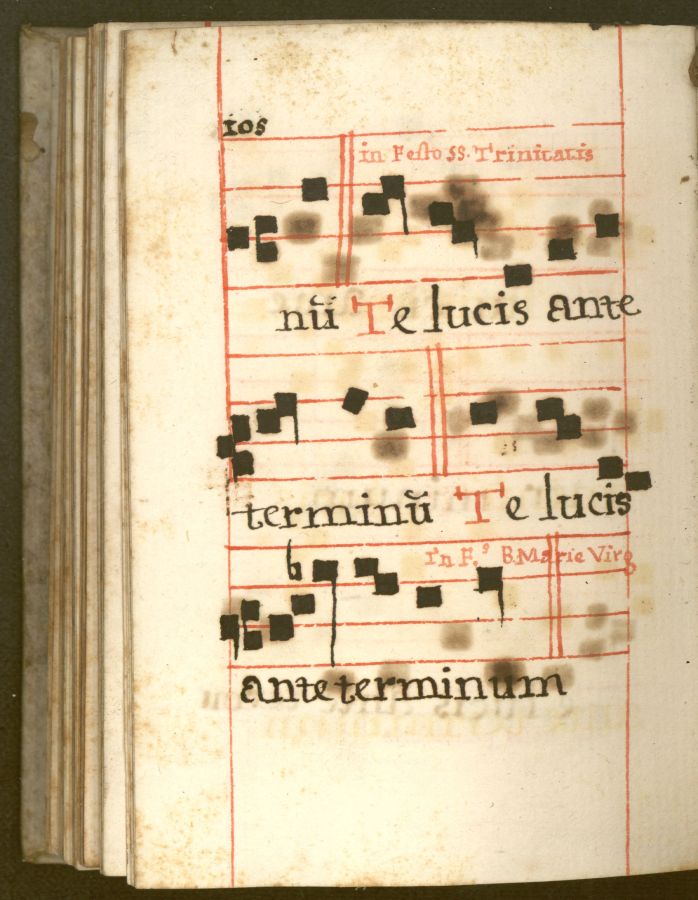 ios
in Festo SS. Trinitatis
nũ Te lucis ante
terminũ Te lucis
In F.º B. Marie Virg
ante terminum